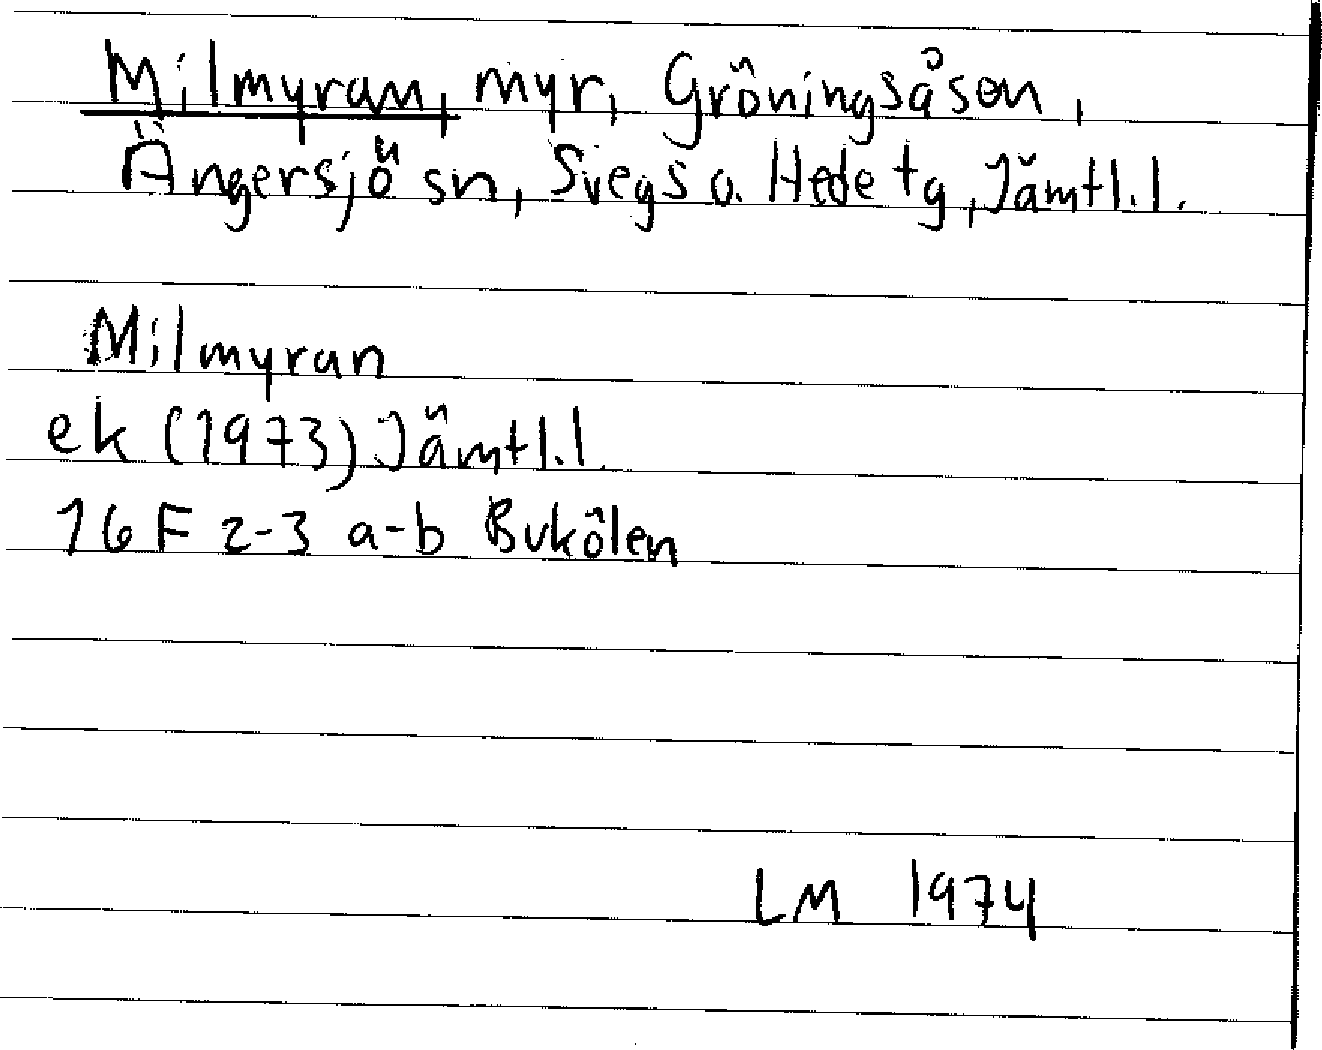 Milmyran, myr, Gröningsåsen,
Ängersjö sn, Svegs o. Hede tg, Jämtl.l.
Milmyran
ek (1973) Jämtl.l.
16 F 2-3 a-b Bukölen
LM 1974